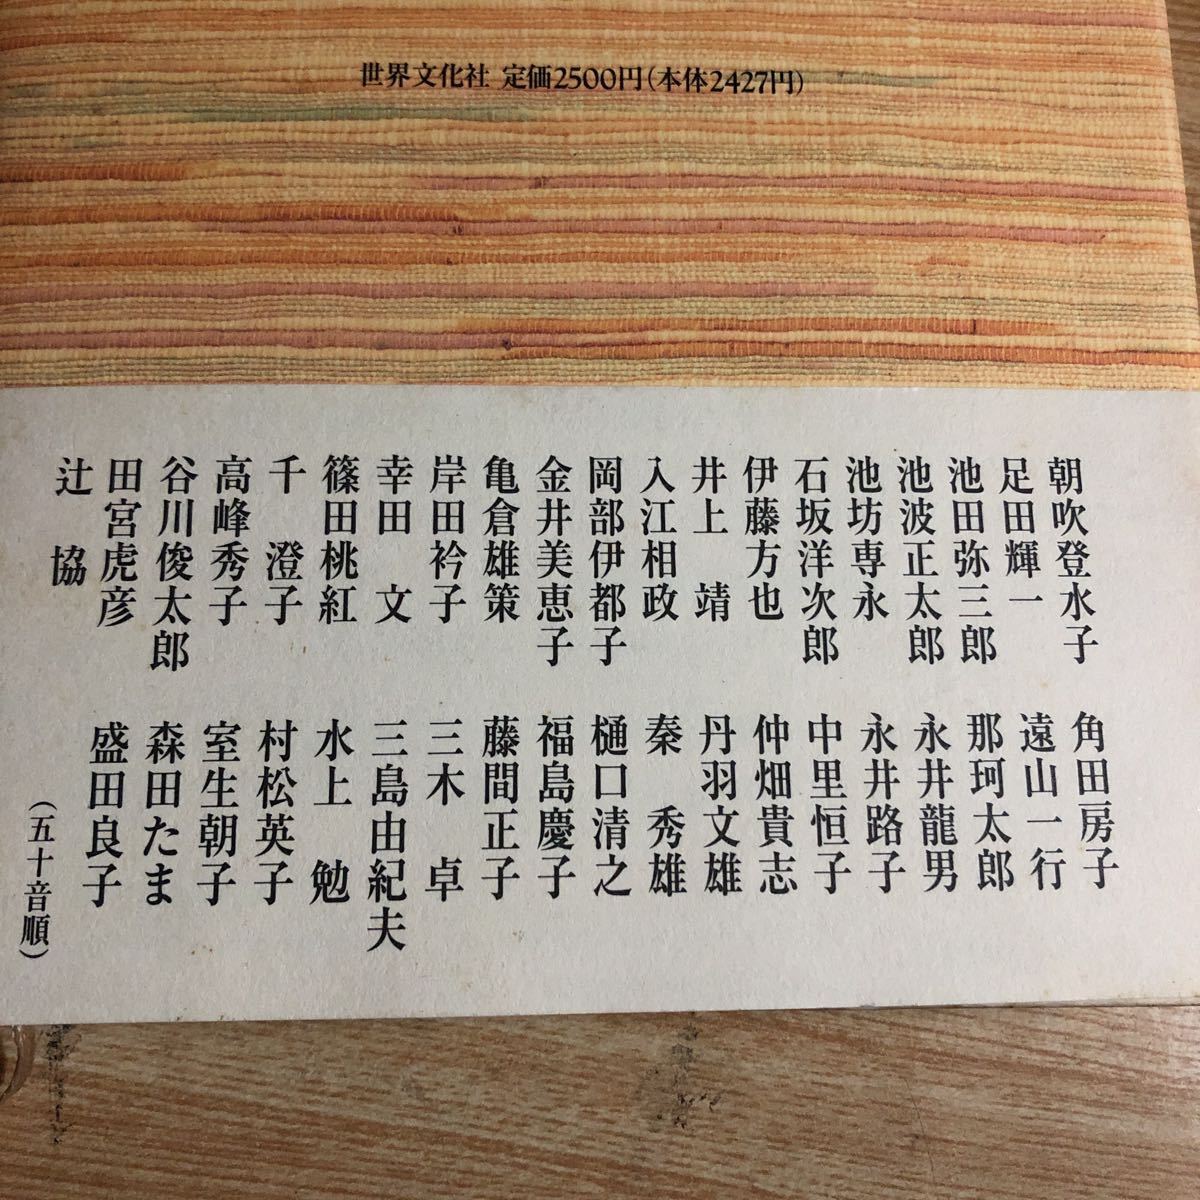 世界文化社 定価2500円(本体2427円)
朝吹登水子
足田輝一
池田弥三郎
池波正太郎
池坊専永
石坂洋次郎
伊藤方也
井上 靖
入江相政
岡部伊都子
金井美恵子
亀倉雄策
岸田衿子
幸田 文
篠田桃紅
千 澄子
高峰秀子
谷川俊太郎
田宮虎彦
辻 協
角田房子
遠山一行
那珂太郎
永井龍男
永井路子
中里恒子
仲畑貴志
丹羽文雄
秦 秀雄
樋口清之
福島慶子
藤間正子
三木 卓
三島由紀夫
水上 勉
村松英子
室生朝子
森田たま
盛田良子
(五十音順)